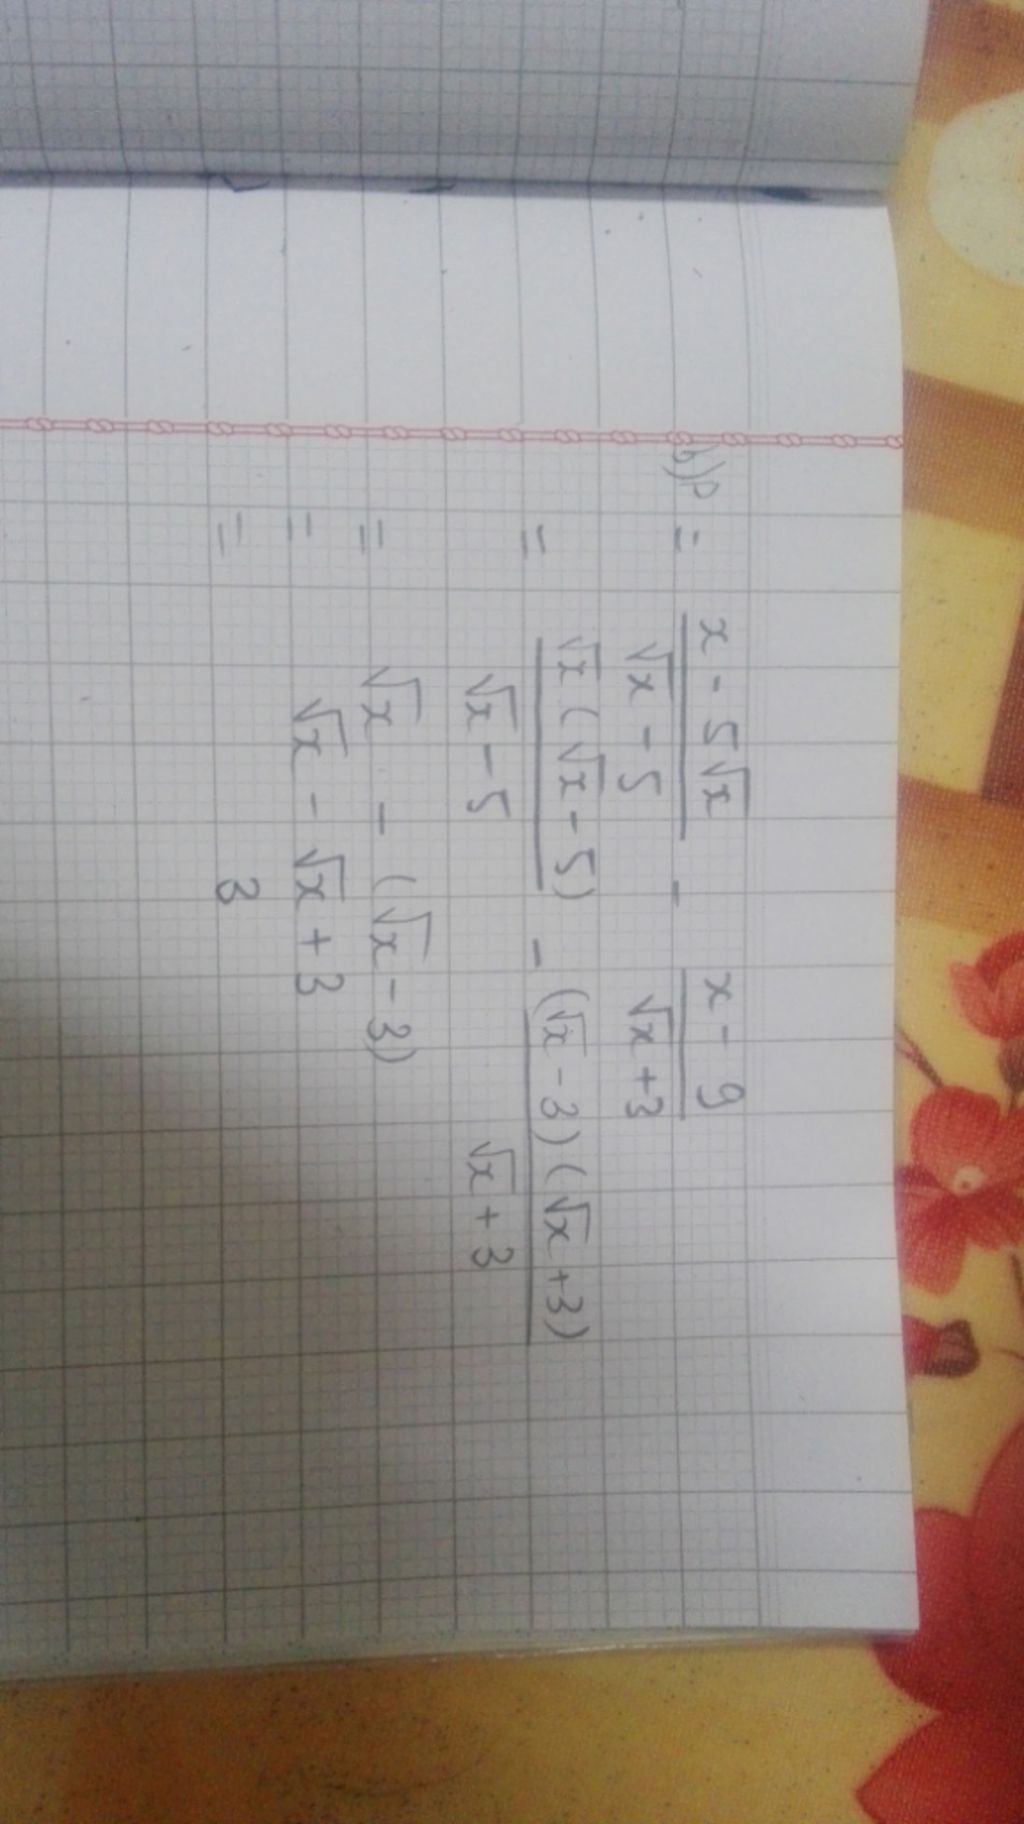 b) P = \frac{x - 5\sqrt{x}}{\sqrt{x} - 5} - \frac{x - 9}{\sqrt{x} + 3}
= \frac{\sqrt{x}(\sqrt{x} - 5)}{\sqrt{x} - 5} - \frac{(\sqrt{x} - 3)(\sqrt{x} + 3)}{\sqrt{x} + 3}
= \sqrt{x} - (\sqrt{x} - 3)
= \sqrt{x} - \sqrt{x} + 3
= 3